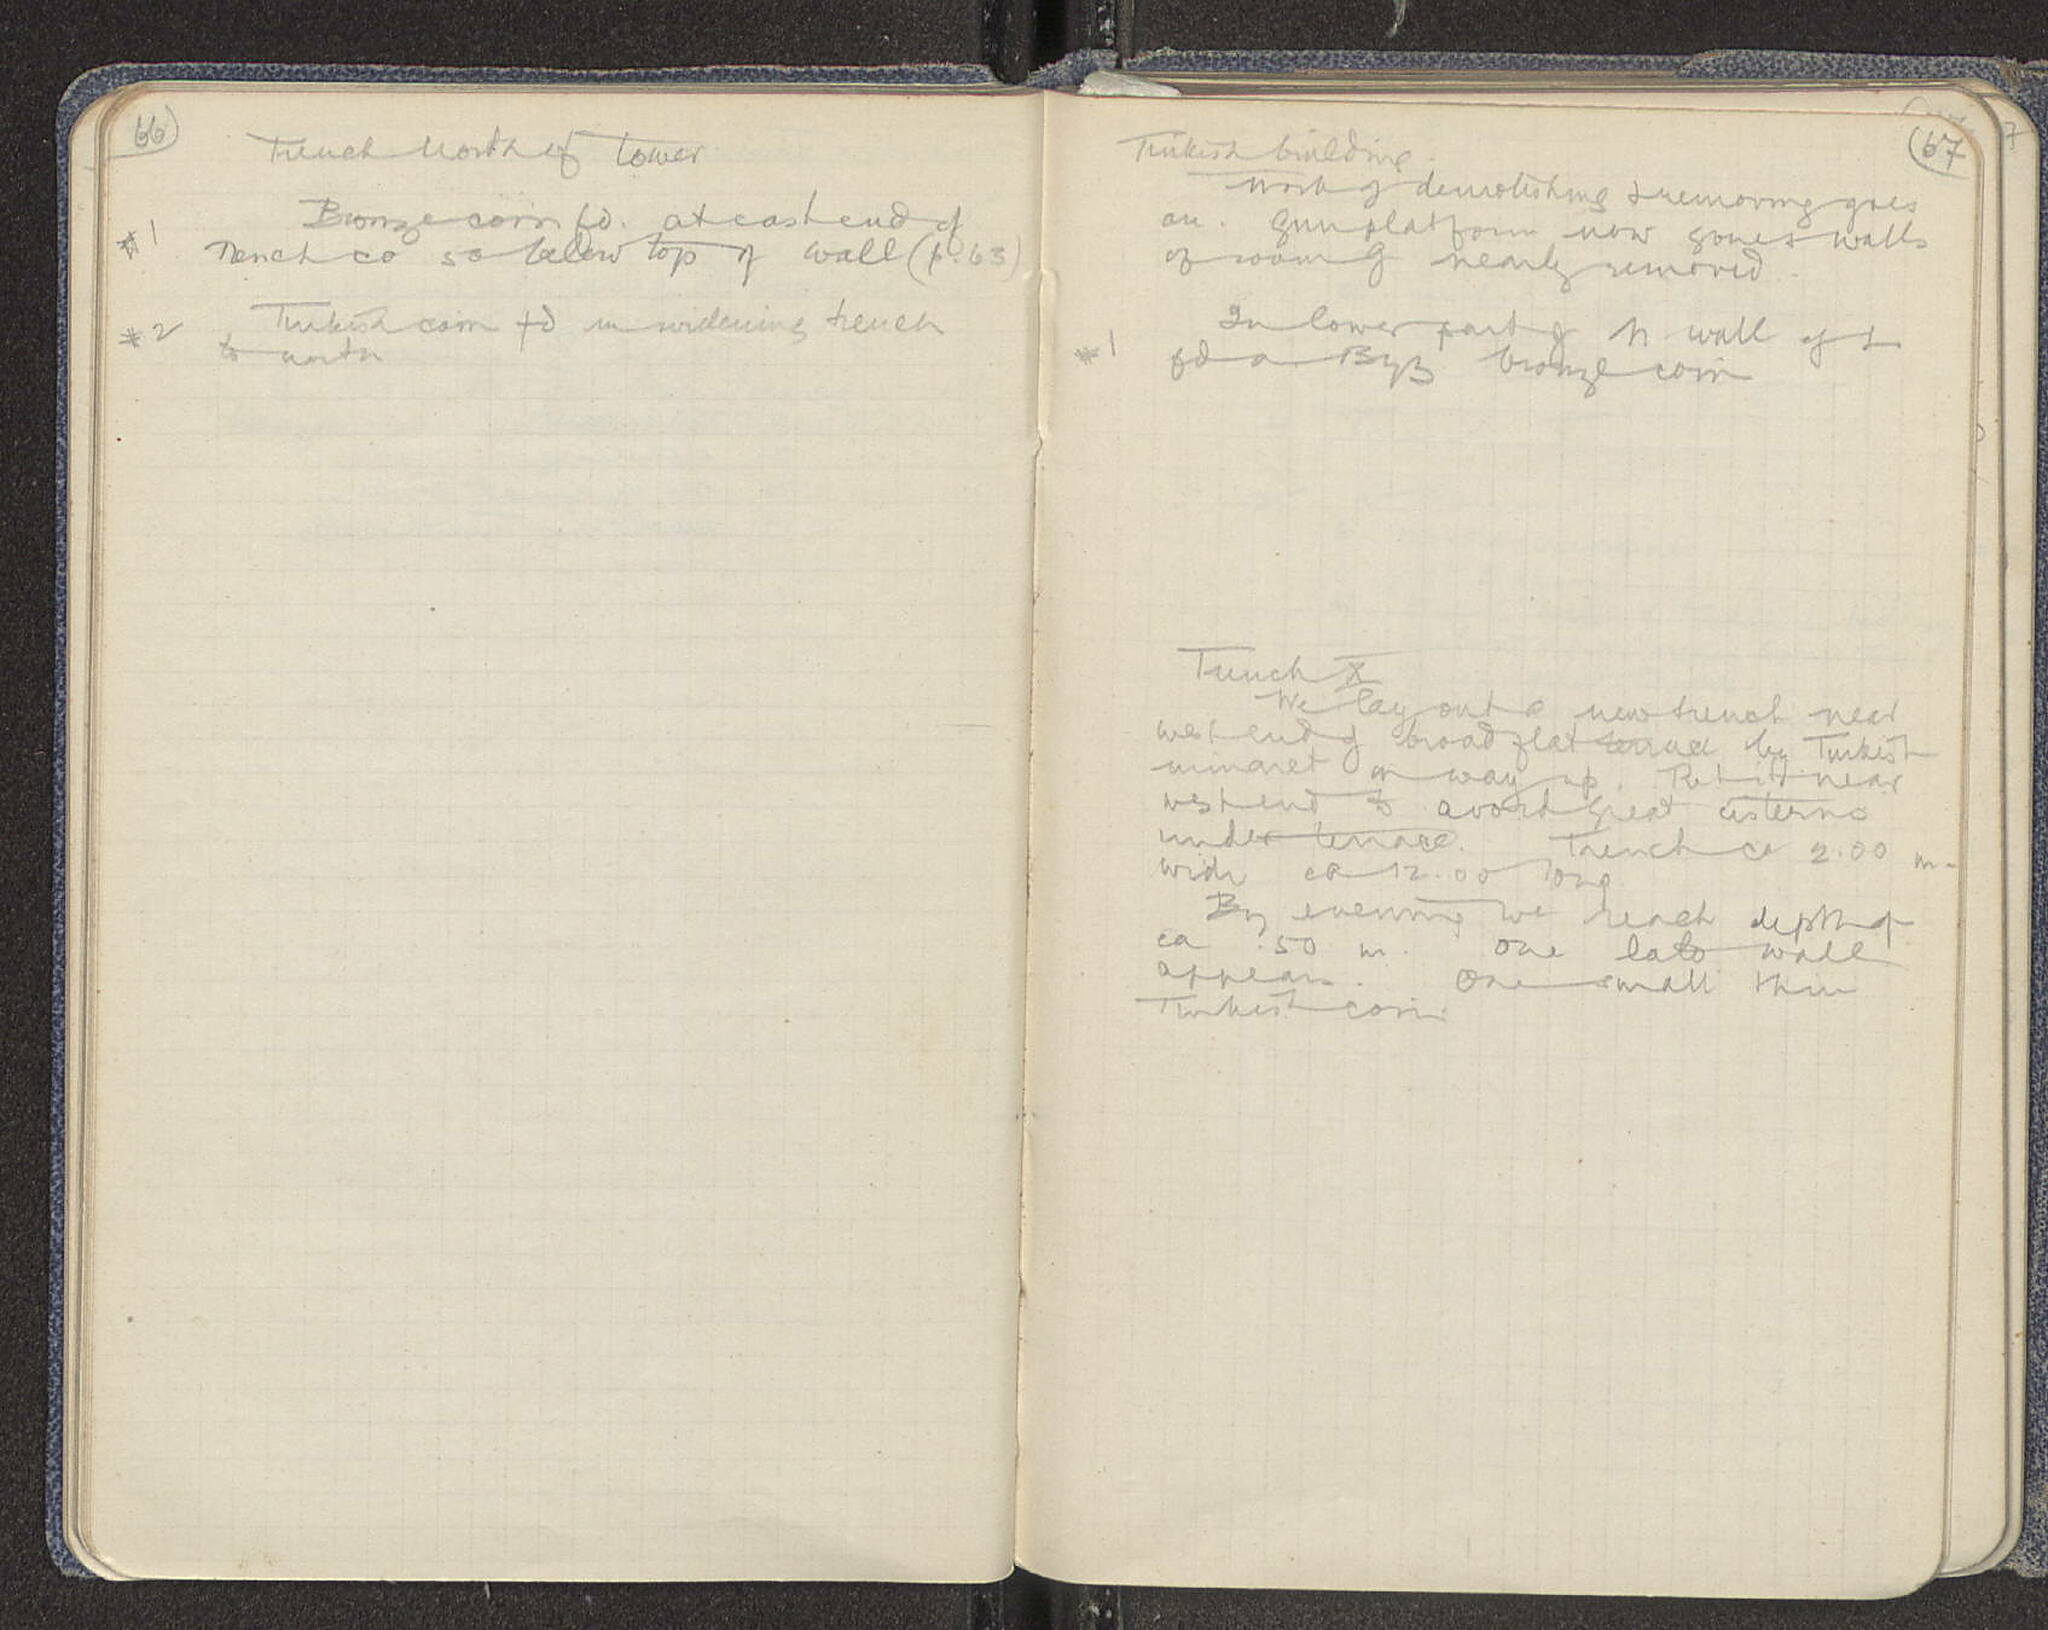 66
Trench North of Tower
#1 Bronze coin fd. at east end of
trench ca 50 below top of wall (p. 63)
#2 Turkish coin fd in widening trench
to north
67
Turkish building.
Work of demolishing & removing goes
on. Gun platform now gone & walls
of room G nearly removed.
In lower part of N wall of I
#1 fd a Byz bronze coin
Trench X
We lay out a new trench near
west end of broad flat terrace by Turkish
minaret on way up. Put it near
west end to avoid great cisterns
under terrace. Trench ca 2.00 m.
wide ca 12.00 long
By evening we reach depth of
ca .50 m. One late wall
appears. One small thin
Turkish coin.